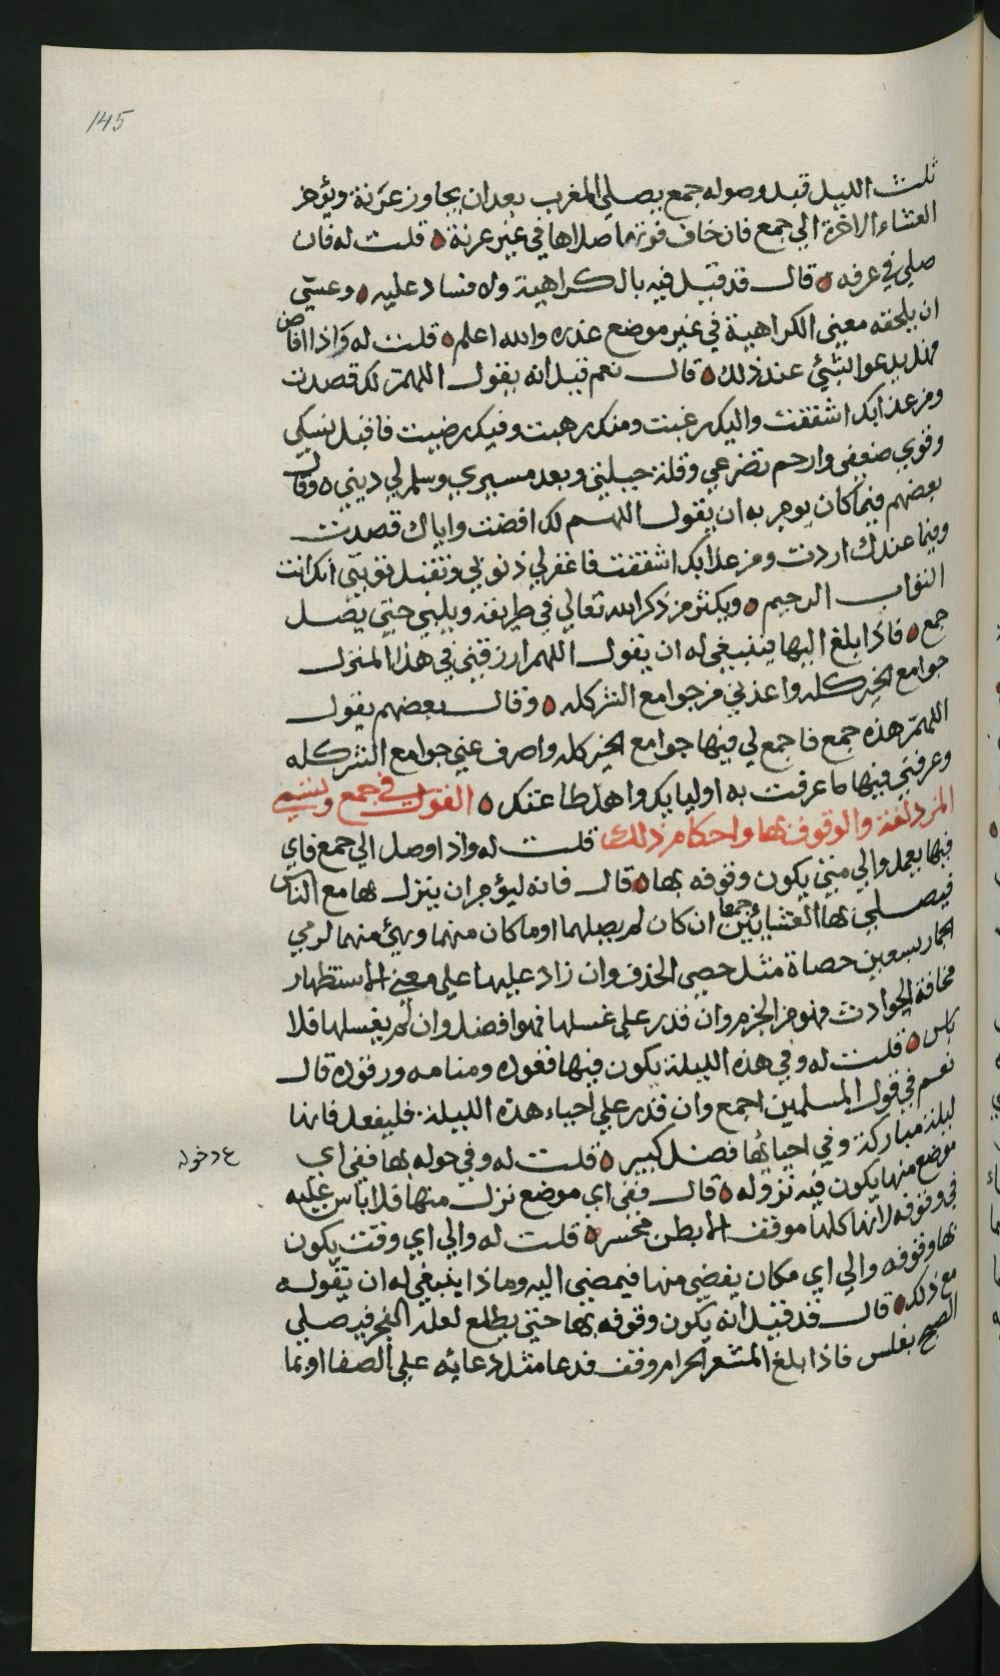 145
ثلث الليل قبل وصوله جمع يصلي المغرب بعد ان يجاوز عرنة ويؤخر
العشاء الاخرة الي جمع فان خاف فوتهما صلاها في غير عرنة ه قلت له فان
صلي في عرفه ه قال قد قيل فيه بالكراهية ولا فساد عليه ه وعسي
ان يلحقه معني الكراهية في غير موضع عذره والله اعلم ه قلت له واذا افاض
فهل يدعوا بشئ عند ذلك ه قال نعم قيل انه يقول اللهم لك قصدت
ومن عذابك اشفقت واليك رغبت ومنك رهبت وفيك رضيت فاقبل نسكي
وقوي ضعفي وارحم تضرعي وقلة حيلتي وبعد مسيري وسلم لي ديني ه وقال
بعضهم فيما كان يوجر به ان يقول اللهم لك افضت واياك قصدت
وفيما عندك اردت ومن عذابك اشفقت فاغفر لي ذنوبي وتقبل توبتي انك انت
التواب الرحيم ه ويكثر من ذكر الله تعالي في طريقه ويلبي حتي يصل
جمع ه فاذا بلغ اليها فينبغي له ان يقول اللهم ارزقني في هذا المنزل
جوامع الخير كله واعذني من جوامع الشر كله ه وقال بعضهم يقول
اللهم هذه جمع فاجمع لي فيها جوامع الخير كله واصرف عني جوامع الشر كله
وعرفني فيها ما عرفت به اولياءيك واهل طاعتك ه القول في جمع وتسمي
المزدلفة والوقوف بها واحكام ذلك قلت له واذا وصل الي جمع فاي
فيها يعمل والي متي يكون وقوفه بها ه قال فانه ليؤجر ان ينزل بها مع الناس
فيصلي بها العشائين جمعا ان كان لم يصلهما او ما كان منهما ويهئ منها لرمي
الجمار سبعين حصاة مثل حصي الخذف وان زاد عليها علي معني الاستظهار
مخافة الحوادث فهو من الحزم وان قدر علي غسلها فهو افضل وان لم يغسلها فلا
باس ه قلت له وفي هذه الليلة يكون فيها قعوده ومنامه ورقوده قال
نعم في قول المسلمين اجمع وان قدر علي احياء هذه الليلة فليفعل فانها
ليلة مباركة وفي احيائها فضل كبير ه قلت له وفي حوله بها ففي اي
ع دخوله
موضع منها يكون فيه نزوله ه قال ففي اي موضع نزل منها فلا باس عليه
في وقوفه لانها كلها موقف الا بطن محسر ه قلت له والي اي وقت يكون
بها وقوفه والي اي مكان يفضي منها فيمضي اليه وماذا ينبغي له ان يقوله
مع ذلك ه قال قد قيل انه يكون وقوفه بها حتي يطلع لعله الفجر فيصلي
الصبح بغلس فاذا بلغ المشعر الحرام وقف فدعا مثل دعائه علي الصفا او بما